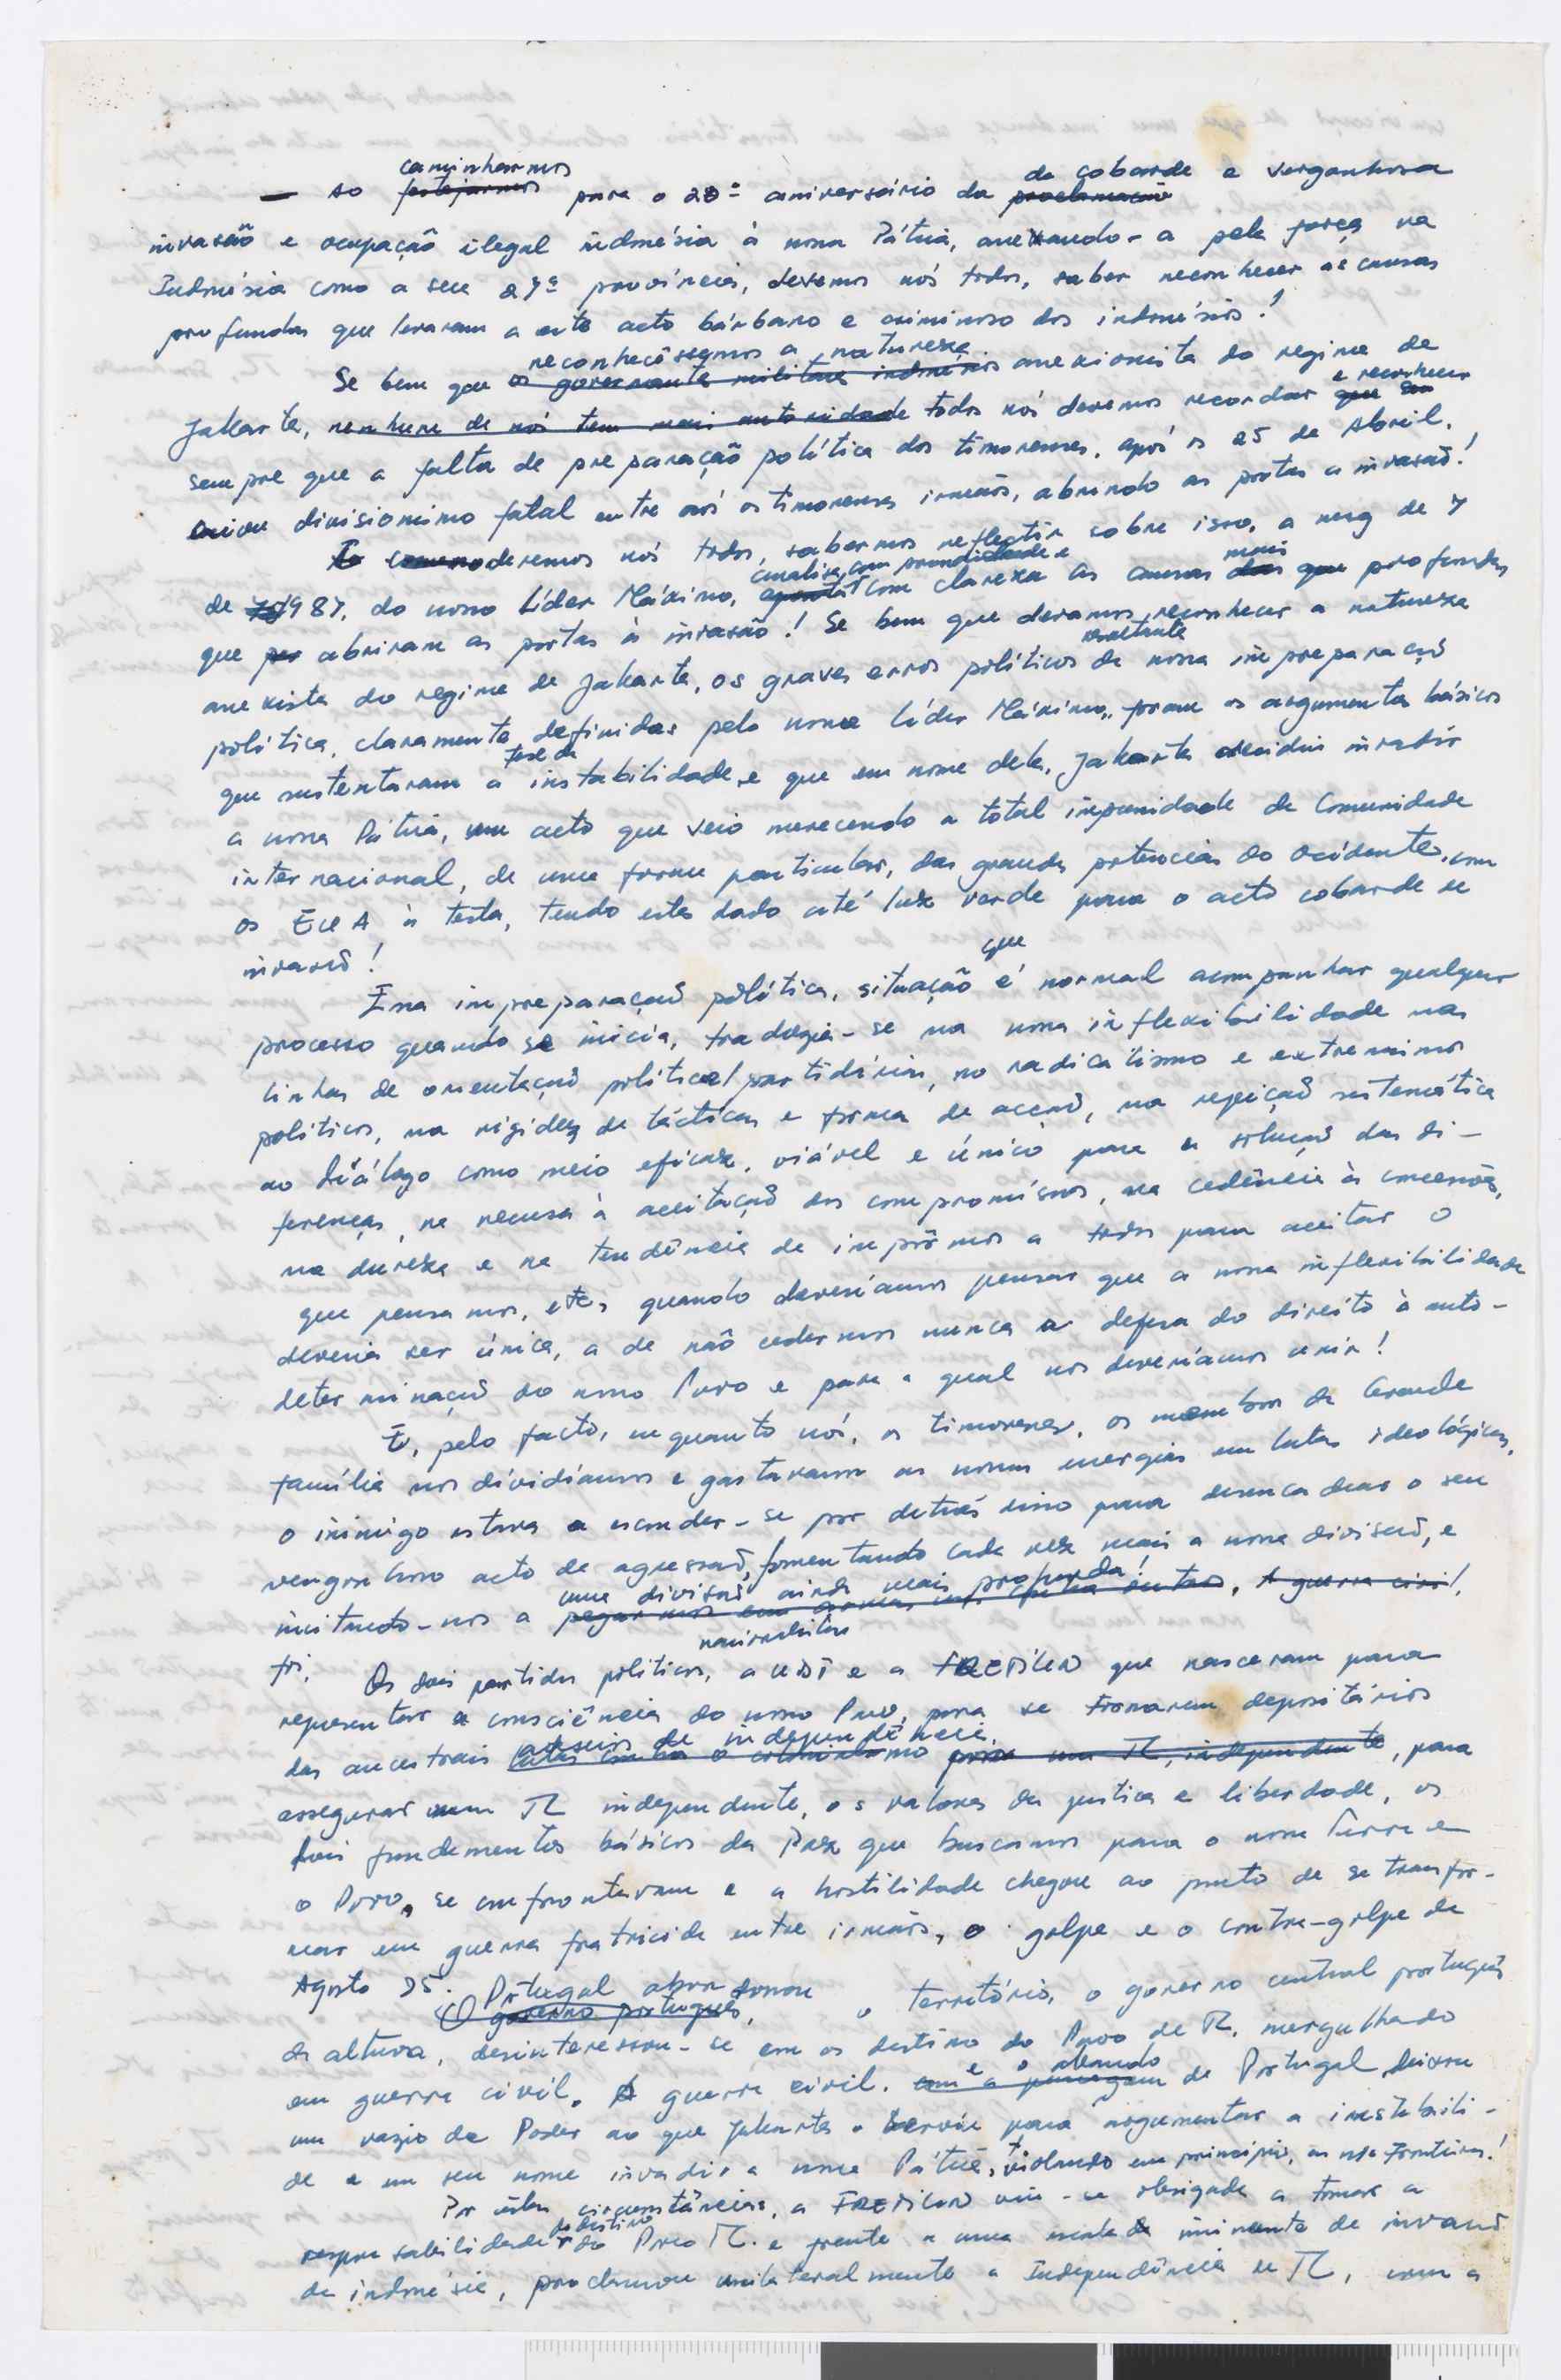 — Ao caminharmos para o 20º aniversário da cobarde e vergonhosa
invasão e ocupação ilegal indonésia à nossa Pátria, anexando-a pela força na
Indonésia como a sua 27ª província, devemos nós todos, saber reconhecer as causas
profundas que levaram a este acto bárbaro e criminoso dos indonésios!
Se bem que reconhecêssemos a natureza anexionista do regime de
Jakarta, todos nós devemos recordar e reconhecer
sempre que a falta de preparação política dos timorenses, após o 25 de Abril,
criou divisionismo fatal entre nós os timorenses irmãos, abrindo as portas a invasão!
devemos nós todos, sabermos reflectir sobre isso, a msg de 7
de 1987, do nosso Líder Máximo, analisa, com profundidade e com clareza as causas mais profundas
que abriram as portas à invasão! Se bem que devamos reconhecer a natureza
anexista do regime de Jakarta, os graves erros políticos resultante da nossa impreparação
política, claramente definidas pelo nosso Líder Máximo, foram os argumentos básicos
que sustentaram a tese da instabilidade, e que em nome dela, Jakarta decidiu invadir
a nossa Pátria, um acto que veio merecendo a total impunidade da Comunidade
internacional, de uma forma particular, das grandes potencias do ocidente, com
os EUA à testa, tendo estes dado até luz verde para o acto cobarde de
invasão!
Essa impreparação política, situação que é normal acompanhar qualquer
processo quando se inicia, traduzia-se na nossa inflexibilidade nas
linhas de orientação política/partidárias, no radicalismo e extremismo
políticos, na rigidez de tácticas e forma de acção, na rejeição sistemática
ao diálogo como meio eficaz, viável e único para a solução das di-
ferenças, na recusa à aceitação dos compromissos, na cedência às concessões,
na dureza e na tendência de impôrmos a todos para aceitar o
que pensamos, etc, quando deveríamos pensar que a nossa inflexibilidade
deveria ser única, a de não cedermos nunca a defesa do direito à auto-
determinação do nosso Povo e para a qual nos deveríamos unir!
E, pelo facto, enquanto nós, os timorenses, os membros da Grande
família nos dividíamos e gastávamos as nossas energias em lutas ideológicas,
o inimigo estava a esconder-se por detrás disso para desencadear o seu
vergonhoso acto de agressão, fomentando cada vez mais a nossa divisão, e
incitando-nos a uma divisão ainda mais profunda!
Os dois partidos políticos, nacionalistas a UDT e a FRETILIN que nasceram para
representar a consciência do nosso Povo, para se tornarem depositários
dos ancestrais anseios de independência, para
assegurar num TL independente, os valores da justiça e liberdade, os
dois fundamentos básicos da Paz que buscamos para a nossa Terra e
o Povo, se confrontavam e a hostilidade chegou ao ponto de se transfor-
mar em guerra fratricida entre irmãos, o golpe e o contra-golpe de
Agosto 75.
Portugal abandonou o território, o governo central português
da altura, desinteressou-se com os destino do Povo de TL, mergulhado
em guerra civil. A guerra civil. e o abandono de Portugal deixou
um vazio de Poder ao que Jakarta o serviu para argumentar a instabili-
de e em seu nome invadir a nossa Pátria, violando em princípio, as nossas fronteiras!
Por estas circunstâncias, a FRETILIN viu-se obrigada a tomar a
responsabilidade do destino do Povo TL. e frente a uma iminente de invasão
da indonésia, proclamou unilateralmente a Independência de TL, com a